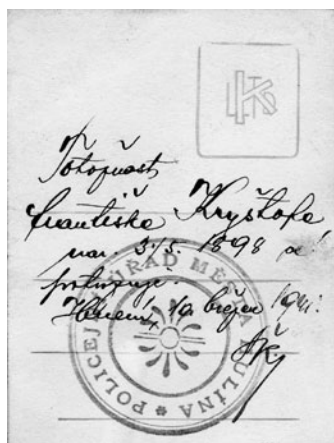 Totožnost
Františka Kryštofa
nar. 3/5. 1898 a
potvrzuje.
10. 1941.
POLICEJNÍ ÚŘAD MĚSTA HULÍNA